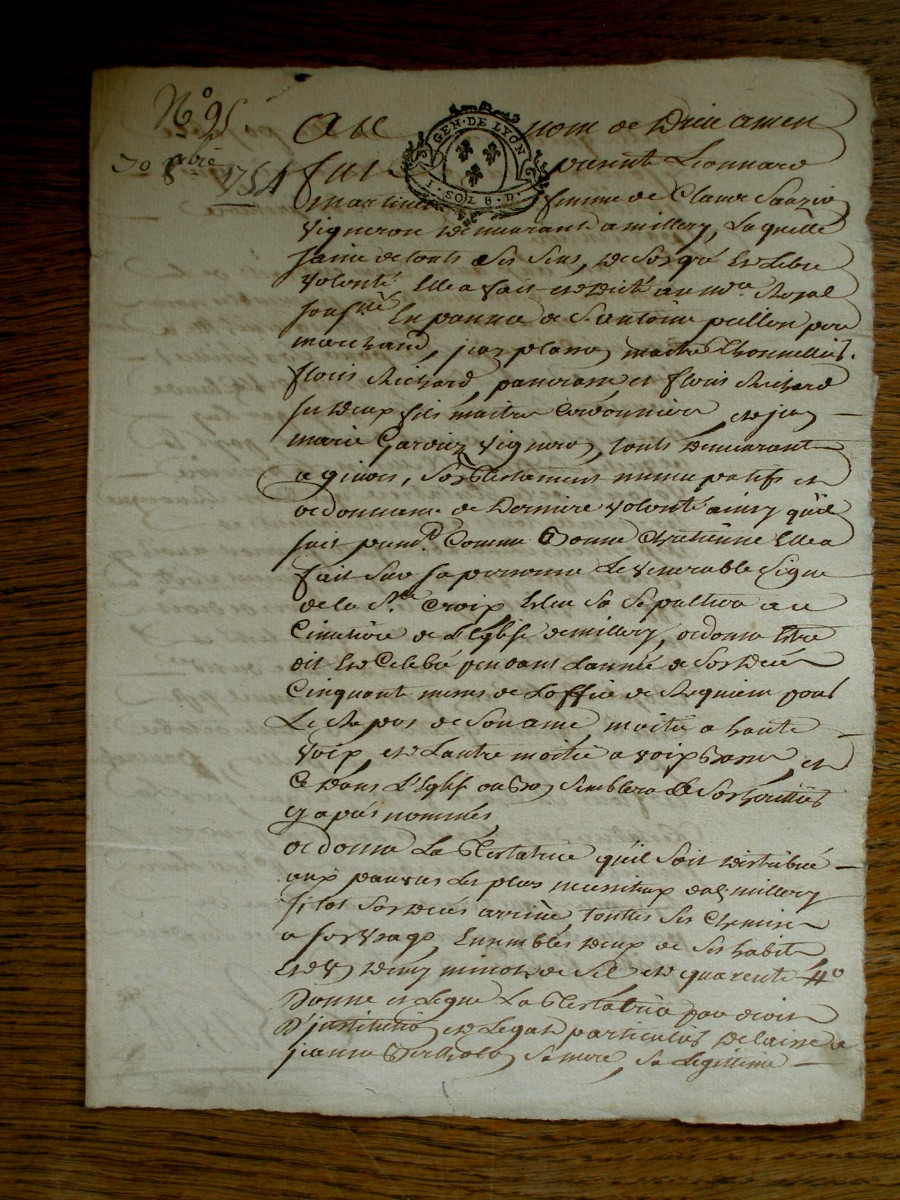 N° 95
30 8bre 1754
GEN·DE LYON
1·SOL 8·D
Au nom de Dieu amen
fut presente Leonnard
Martinet femme de Claude
vigneron demeurant a millery, Laquelle
saine de touts ses sens, de son gré et Libre
volonté Elle a fait et dicté au nre Royal
soussné En presence de Sr antoine
marchand, jean maitre
flouis Richard, et flouis Richard
ses deux fils maitres Cordonniers et jean
marie vigneron, touts demeurant
a givors, son testament nuncupatifs et
ordonnance de derniere volonté ainsy qu'il
suit premt Comme Bonne Chretienne Elle a
fait sur sa personne Le venerable signe
de la Ste Croix Eleu sa sepulture au
Cimetière de L'Eglise de millery, ordonne Etre
dit et Celebré pendant L'année de son deces
Cinquante messes de L'office de Requiem pour
Le Repos de son ame moitié a haute
voix, et L'autre moitié a voix Basse et
Ce dans L'Eglise ou Bon semblera a ses heritiers
cy apres nommés
ordonne La Testatrice qu'il soit distribué
aux pauvres Les plus necessiteux de millery
sitot son deces arrivé touttes ses chemises
a son usage, Ensembles deux de ses habits
et un demy minot de sel et quarente
Donne et Legue La Testatrice par droit
D'institution et Legat particulier delaisse a
jeanne sa mere, sa Legittime